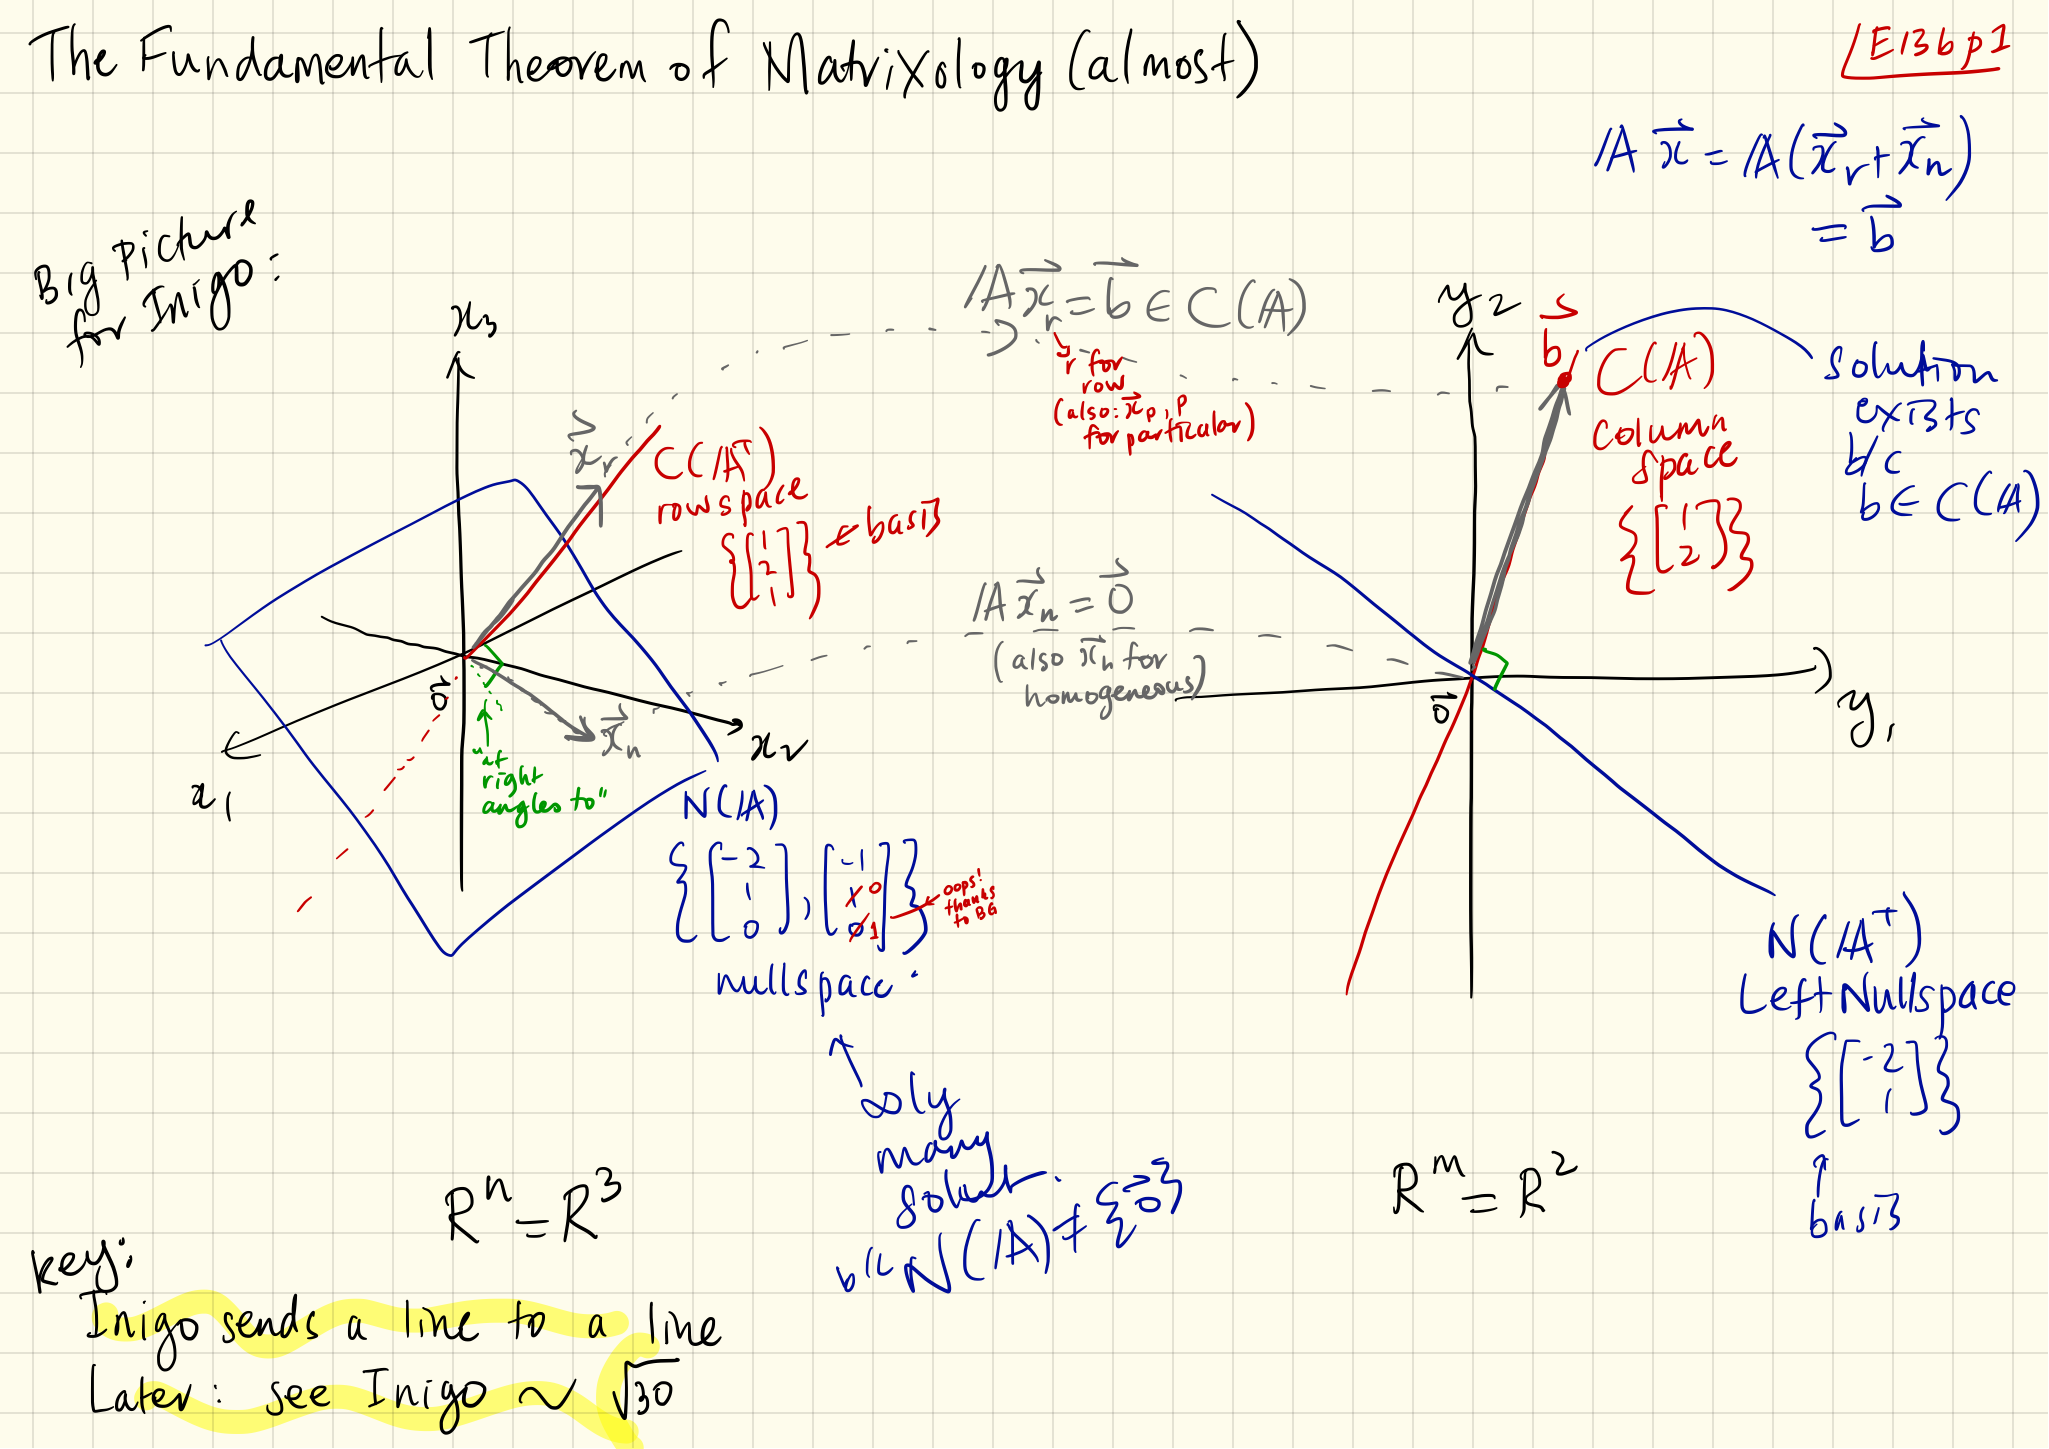 The Fundamental Theorem of Matrixology (almost)
E13b p1
𝔸x⃗ = 𝔸(x⃗r + x⃗n)
= b⃗
Big Picture
for Inigo:
𝔸x⃗r = b⃗ ∈ C(𝔸)
r for
row
(also: x⃗p, p
for particular)
x3
x⃗r
C(𝔸ᵀ)
row space
{[1 2 1]} ← basis
0⃗
x⃗n
x2
x1
"at
right
angles to"
N(𝔸)
{[-2 1 0], [-1 1 0 0 1]}
oops!
thanks
to BG
nullspace.
∞ly
many
solut.
b/c N(𝔸) ≠ {0⃗}
𝔸x⃗n = 0⃗
(also x⃗h for
homogeneous)
y2
b⃗
C(𝔸)
column
space
{[1 2]}
solution
exists
b/c
b ∈ C(𝔸)
0⃗
y1
N(𝔸ᵀ)
Left Nullspace
{[-2 1]}
↑
basis
Rⁿ = R³
Rᵐ = R²
key:
Inigo sends a line to a line
Later: see Inigo ~ √30